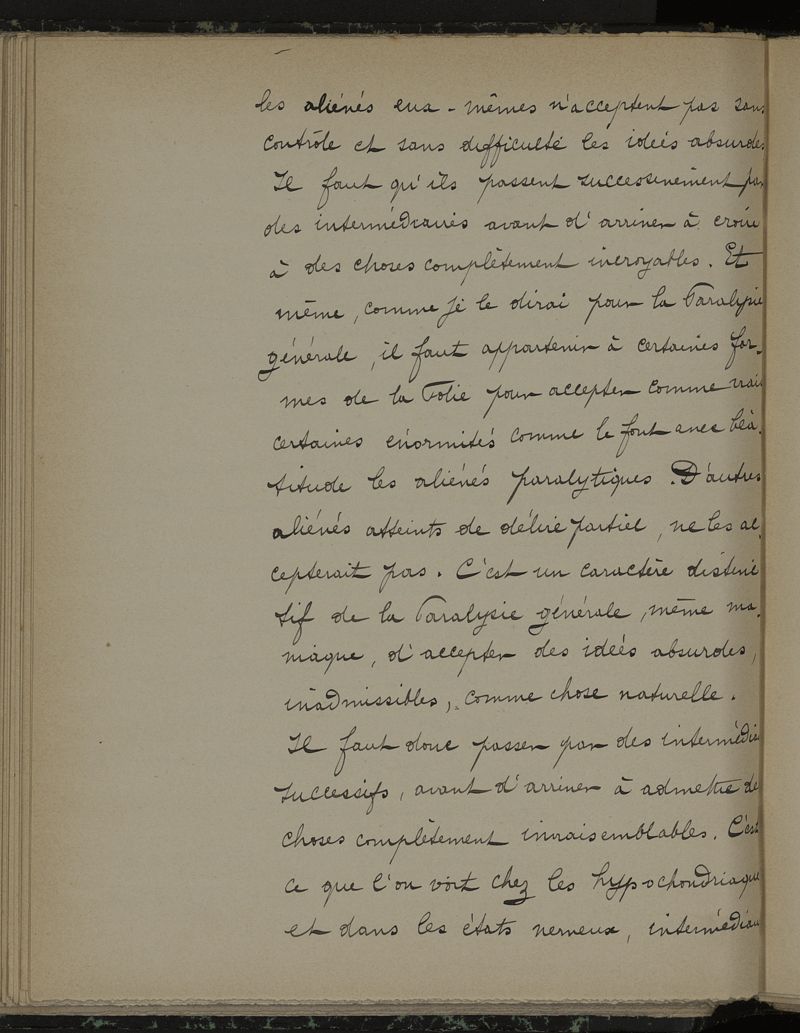 les aliénés eux-mêmes n'acceptent pas sans
contrôle et sans difficulté les idées absurdes
Il faut qu'ils passent successivement par
des intermédiaires avant d'arriver à croire
à des choses complètement incroyables. Et
même, comme je le dirai pour la Paralysie
générale, il faut appartenir à certaines for-
mes de la Folie pour accepter comme vrai
certaines énormités comme le font avec béa-
titude les aliénés paralytiques. D'autres
aliénés atteints de délire partiel, ne les ac-
cepterait pas. C'est un caractère distinc
tif de la Paralysie générale, même ma-
niaque, d'accepter des idées absurdes,
inadmissibles, comme chose naturelle.
Il faut donc passer par des intermédiai
successifs, avant d'arriver à admettre de
choses complètement invraisemblables. C'est
ce que l'on voit chez les hypochondriaque
et dans les états nerveux, intermédiai